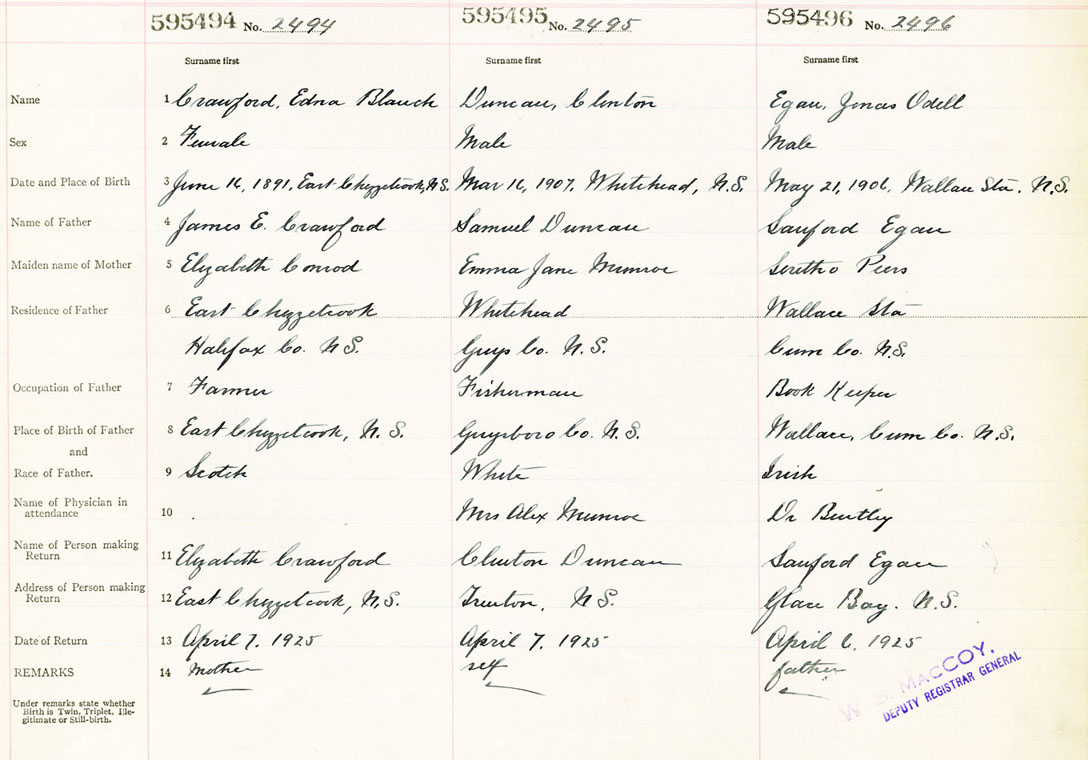 595494 No. 2494 595495 No. 2495 595496 No. 2496
Surname first Surname first Surname first
Name 1 Crawford, Edna Blanch Duncan, Clinton Egan, Jonas Odell
Sex 2 Female Male Male
Date and Place of Birth 3 June 16, 1891, East Chezzetcook, N.S. Mar 16, 1907, Whitehead, N.S. May 21, 1906, Wallace Sta. N.S.
Name of Father 4 James E. Crawford Samuel Duncan Sanford Egan
Maiden name of Mother 5 Elizabeth Conrod Emma Jane Munroe Peers
Residence of Father 6 East Chezzetcook Whitehead Wallace Sta
Halifax Co. N.S. Guys Co. N.S. Cum Co. N.S.
Occupation of Father 7 Farmer Fisherman Book Keeper
Place of Birth of Father 8 East Chezzetcook, N.S. Guysboro Co. N.S. Wallace, Cum Co. N.S.
and
Race of Father. 9 Scotch White Irish
Name of Physician in
attendance 10 Mrs Alex Munroe Dr
Name of Person making
Return 11 Elizabeth Crawford Clinton Duncan Sanford Egan
Address of Person making
Return 12 East Chezzetcook, N.S. Trenton, N.S. Glace Bay. N.S.
Date of Return 13 April 7. 1925 April 7. 1925 April 6. 1925
REMARKS 14 Mother self father
Under remarks state whether
Birth is Twin, Triplet, Ille-
gitimate or Still-birth.
MACCOY,
DEPUTY REGISTRAR GENERAL